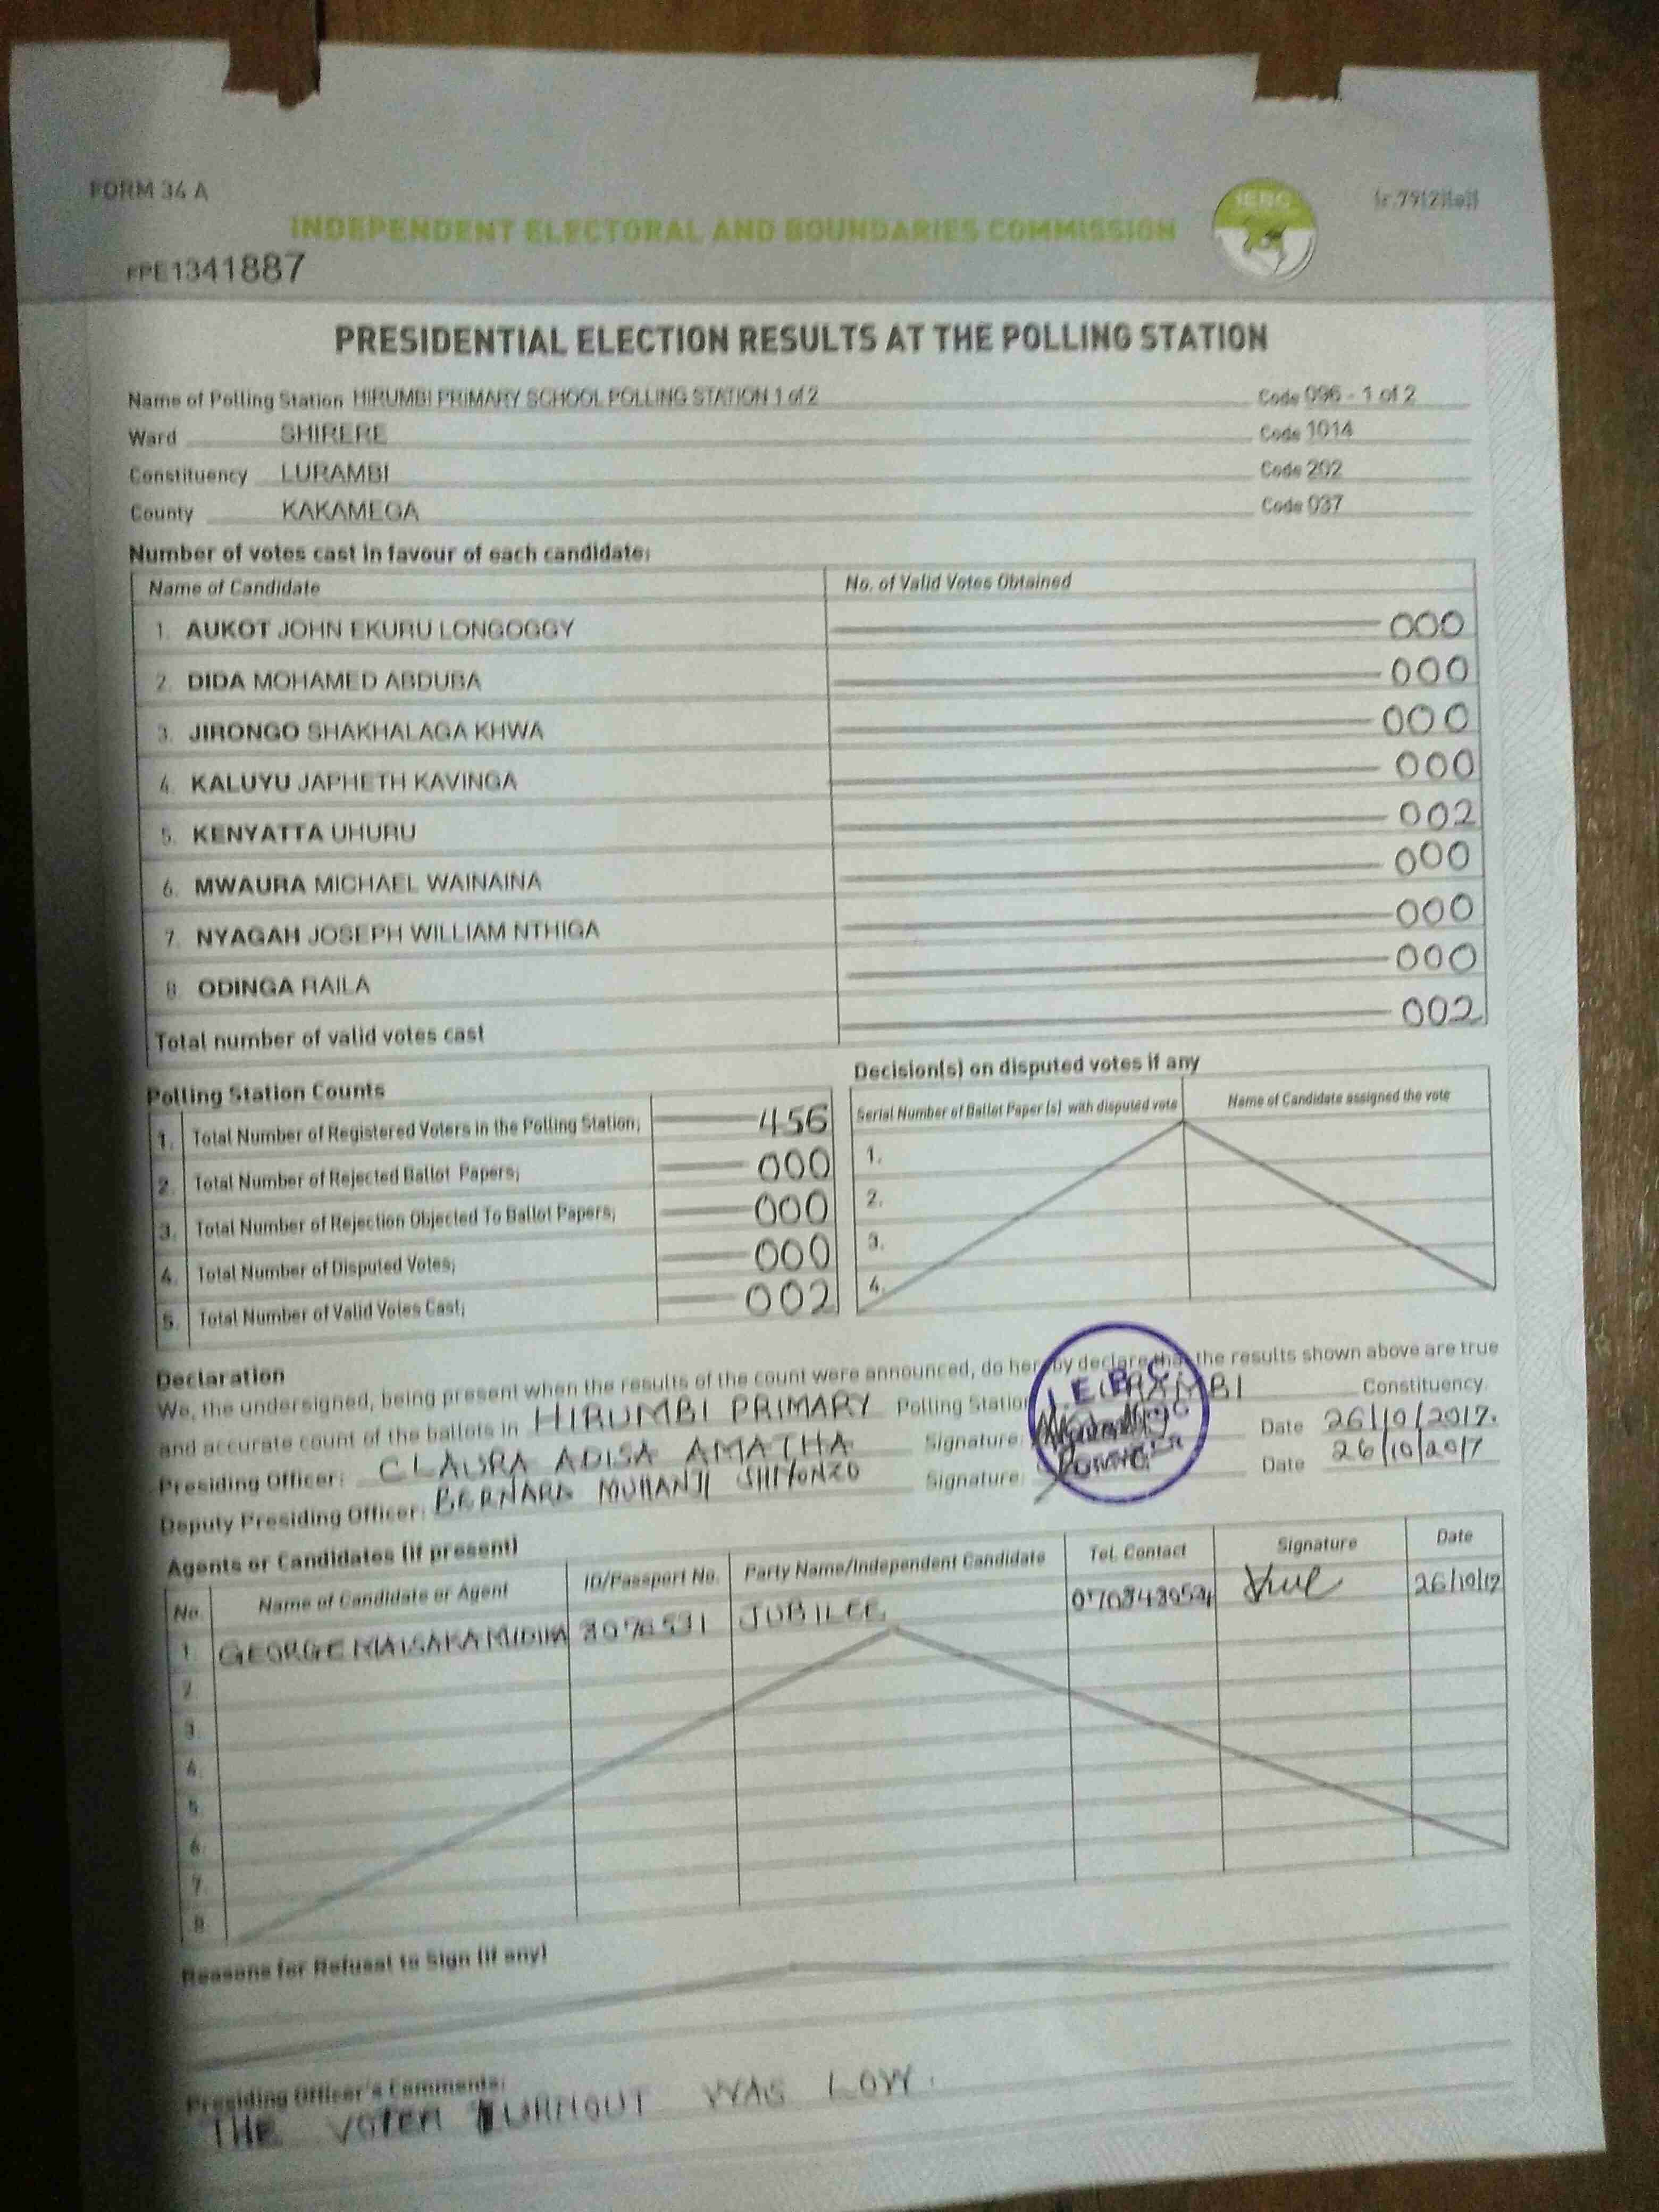 FORM 34 A
INDEPENDENT ELECTORAL AND BOUNDARIES COMMISSION
IEBC
FPE1341887
PRESIDENTIAL ELECTION RESULTS AT THE POLLING STATION
Name of Polling Station HIRUMBI PRIMARY SCHOOL POLLING STATION 1 of 2 Code 096 - 1 of 2
Ward SHIRERE Code 1014
Constituency LURAMBI Code 202
County KAKAMEGA Code 037
Number of votes cast in favour of each candidate;
Name of Candidate No. of Valid Votes Obtained
1. AUKOT JOHN EKURU LONGOGGY 000
2. DIDA MOHAMED ABDUBA 000
3. JIRONGO SHAKHALAGA KHWA 000
4. KALUYU JAPHETH KAVINGA 000
5. KENYATTA UHURU 002
6. MWAURA MICHAEL WAINAINA 000
7. NYAGAH JOSEPH WILLIAM NTHIGA 000
8. ODINGA RAILA 000
Total number of valid votes cast 002
Polling Station Counts
1. Total Number of Registered Voters in the Polling Station; 456
2. Total Number of Rejected Ballot Papers; 000
3. Total Number of Rejection Objected To Ballot Papers; 000
4. Total Number of Disputed Votes; 000
5. Total Number of Valid Votes Cast; 002
Decision(s) on disputed votes if any
Serial Number of Ballot Paper (s) with disputed vote Name of Candidate assigned the vote
1.
2.
3.
4.
Declaration
We, the undersigned, being present when the results of the count were announced, do hereby declare that the results shown above are true
and accurate count of the ballots in HIRUMBI PRIMARY Polling Station LURAMBI Constituency.
Presiding Officer: CLAURA ADISA AMATHA Signature: Date 26/10/2017.
Deputy Presiding Officer: BERNARD MUHANJI SHIYONZO Signature: Date 26/10/2017
Agents or Candidates (if present)
No. Name of Candidate or Agent ID/Passport No. Party Name/Independent Candidate Tel. Contact Signature Date
1. GEORGE JUBILEE 26/10/17
2.
3.
4.
5.
6.
7.
8.
Reasons for Refusal to Sign (if any)
Presiding Officer's Comments:
THE VOTER TURNOUT WAS LOW.